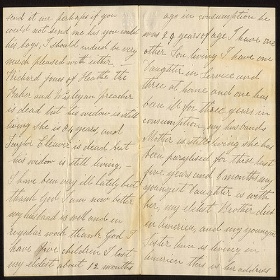 send it me perhaps if you
could not send me his you could
his boys, I should indeed be very
much pleased with either. I
Richard Jones of Heath the
Baker and Wesleyan preacher
is dead but his widow is still
living she is 84 years and
Taylor Elewer is dead but
his widow is still living, –
I have been very ill lately but
thank God I am now better
my husband is well and in
regular work thank God I
have five children I lost
my eldest about 12 months
ago in consumption he
was 29 years of age I have one
other Son living I have one
Daughter in Service and
three at home and one has
been ill for three years in
consumption, my husbands
Mother is still living she has
been paralysed for these last
five years and 6 months my
youngest Daughter is with
her, my eldest Brother died
in America, and my youngest
Sister Ann is living in
America this is her address